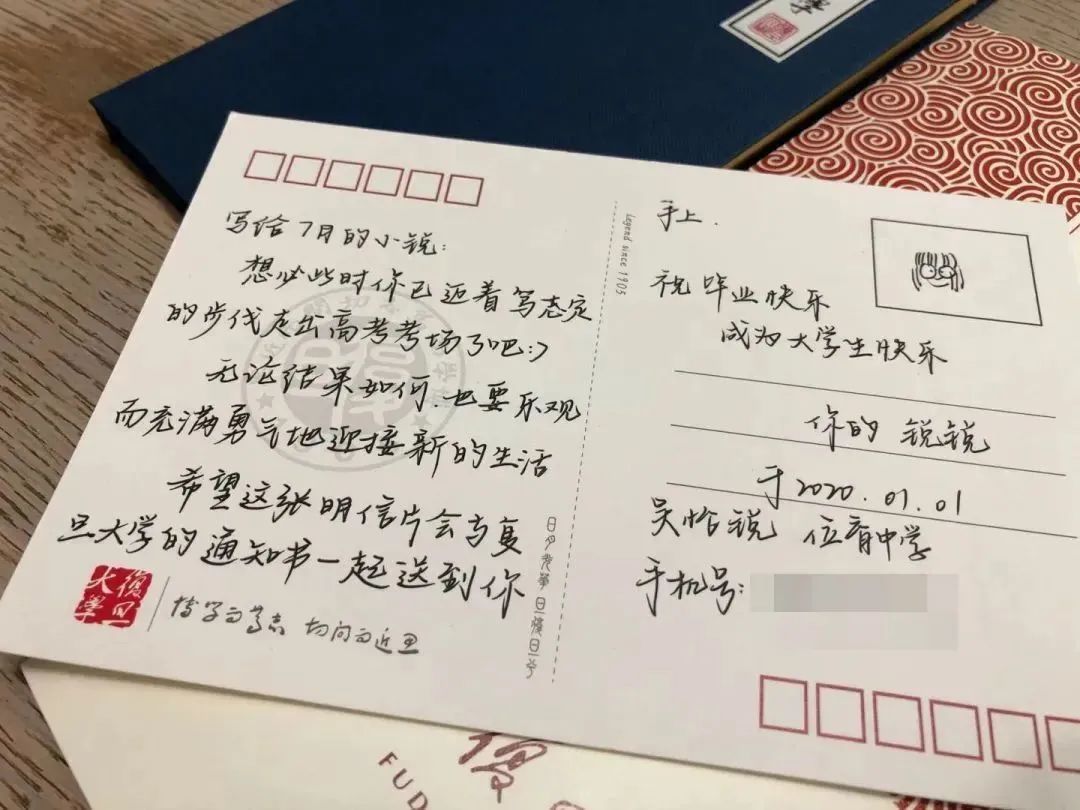 写给7月的小锐:
想必此时你已迈着笃志定
的步伐走出高考考场了吧:)
无论结果如何.也要乐观
而充满勇气地迎接新的生活
希望这张明信片会与复
旦大学的通知书一起送到你
復旦
大學
博学而笃志 切问而近思
日月光華 旦復旦兮
Legend since 1905
手上.
祝 毕业快乐
成为大学生快乐
你的 锐锐
于2020.01.01
吴怡锐 位育中学
手机号:
復
FUD